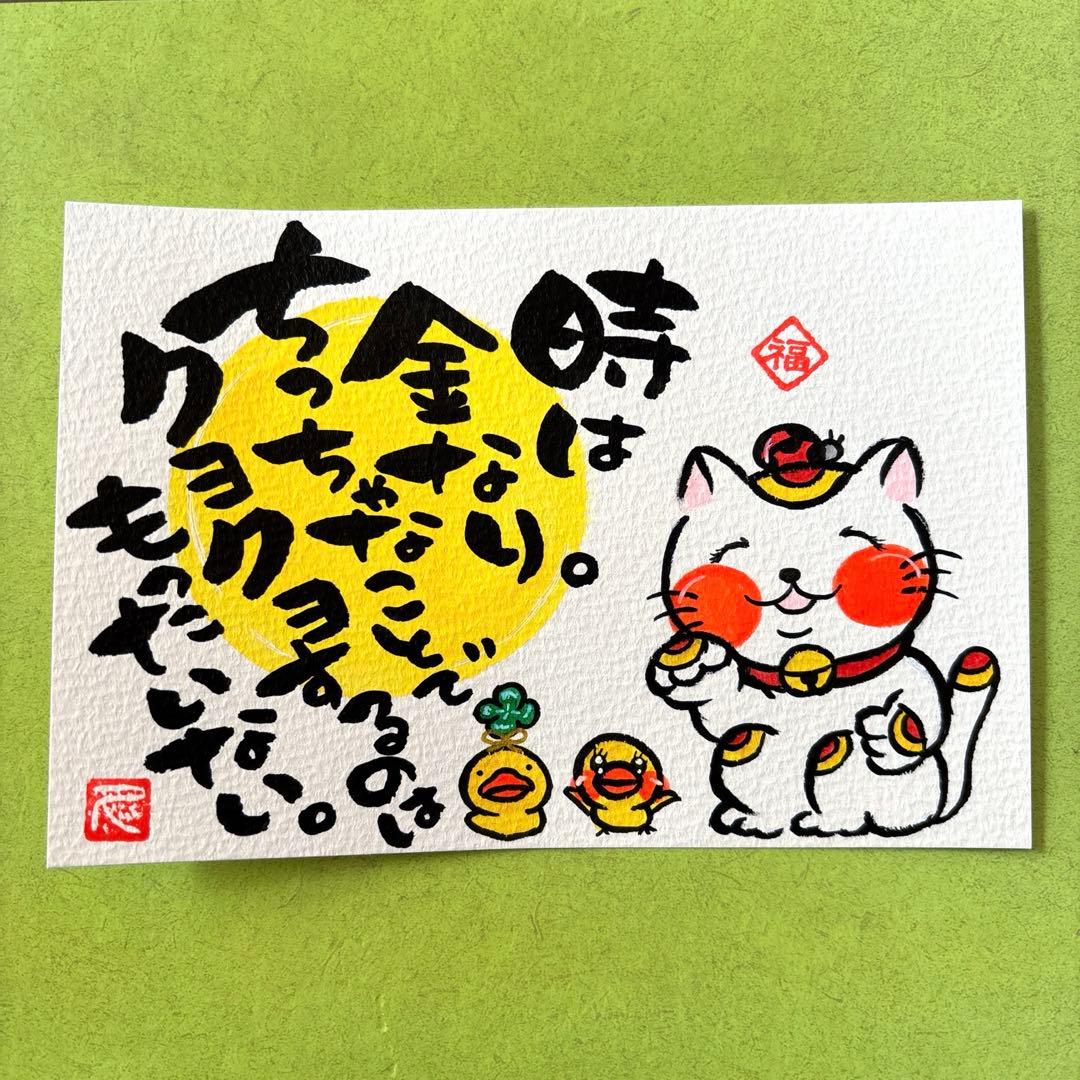 時は
金なり。
ちっちゃなことで
クヨクヨするのは
もったいない。
福